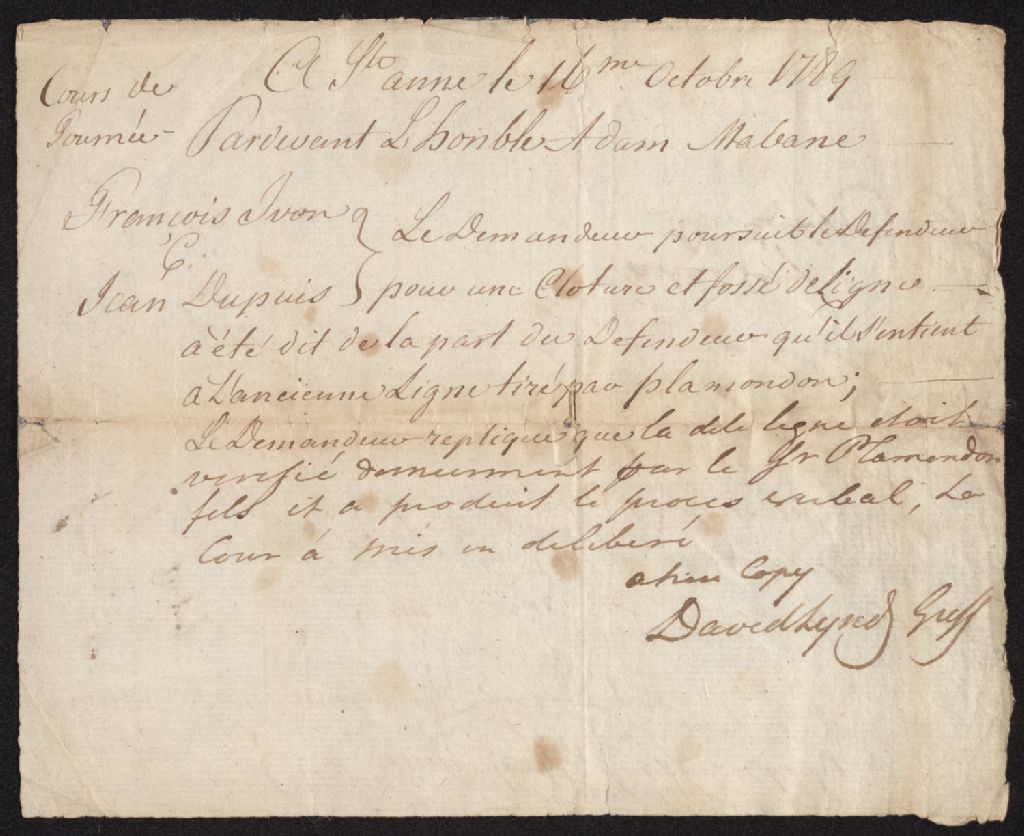 Cours de
Tournée
A Ste anne le 16me Octobre 1789
Pardevant L'honble Adam Mabane
François Ivon
C.
Jean Dupuis
Le Demandeur poursuit le Defendeur
pour une Cloture et fossé de Ligne
a été dit de la part du Defendeur qu'il s'entient
a L'ancienne Ligne tiré par plamondon;
Le Demandeur replique que la dite ligne etoit
verifié dernierement par le Sr Plamondon
fils et a produit le proces verbal, La
Cour á mis en deliberé
a true Copy
David Lynd Greff